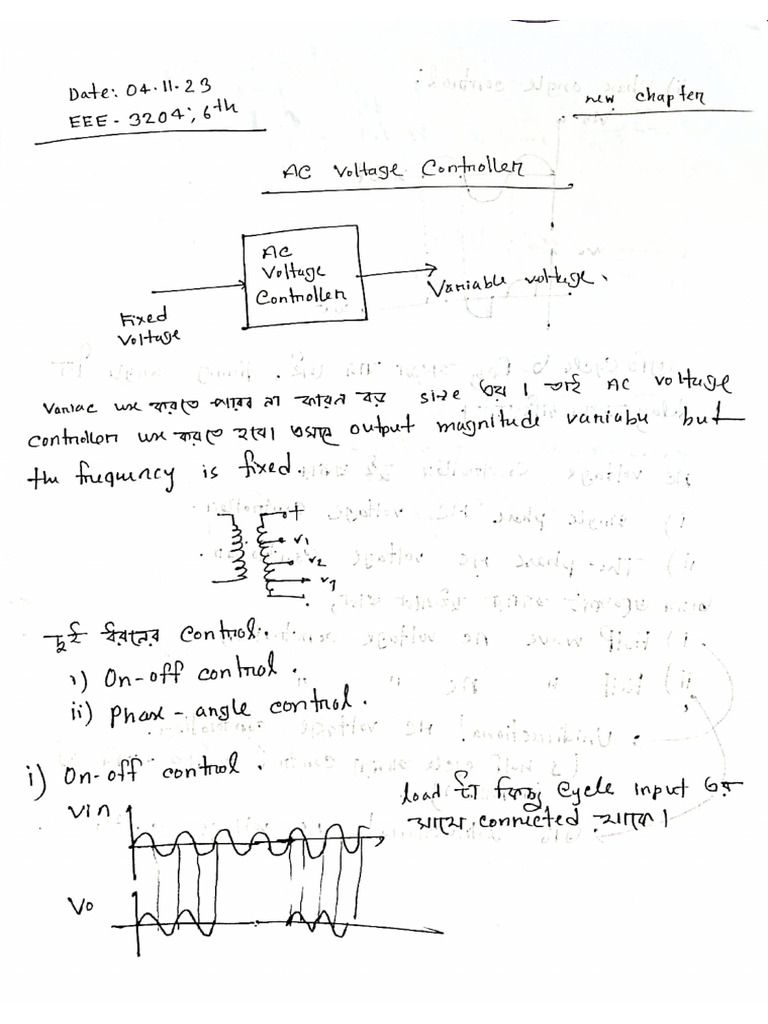 Date: 04.11.23
EEE - 3204; 6th
new chapter
AC Voltage Controller
AC
Voltage
Controller
Fixed
Voltage
Variable voltage.
Variac use করতে পারব না কারন বড় size হয়। তাই AC voltage
controller use করতে হবে। output magnitude variable but
the frequency is fixed.
+
V1
V2
দুই ধরনের control:
i) On-off control.
ii) Phase - angle control.
i) On-off control.
load টা কিছু cycle input এর
সাথে connected থাকে।
Vin
Vo